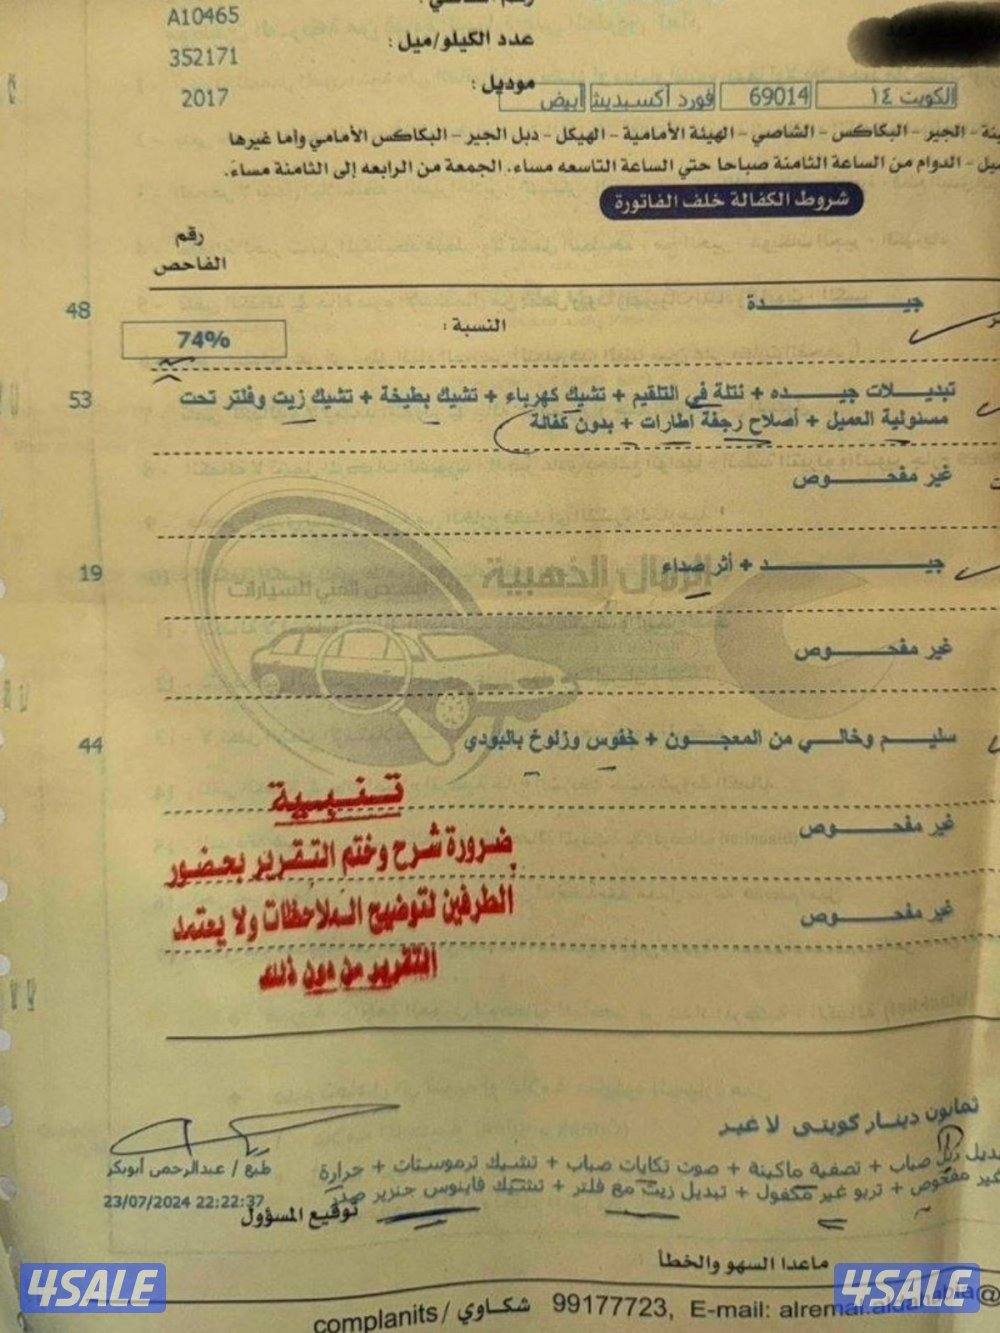 A10465
عدد الكيلو/ميل :
352171
موديل :
2017
الكويت ١٤ 69014 فورد اكسبديشن أبيض
الجير - البكاكس - الشاصي - الهيئة الأمامية - الهيكل - دبل الجير - البكاكس الأمامي وأما غيرها
- الدوام من الساعة الثامنة صباحا حتي الساعة التاسعه مساء. الجمعة من الرابعه إلى الثامنة مساءً.
شروط الكفالة خلف الفاتورة
رقم
الفاحص
جيدة 48
النسبة : 74%
تبديلات جيده + نتلة في التلقيم + تشيك كهرباء + تشيك بطيخة + تشيك زيت وفلتر تحت 53
مسئولية العميل + أصلاح رجفة اطارات + بدون كفالة
غير مفحوص
جيد + أثر صداء 19
الرمال الذهبية
الفحص الفني للسيارات
غير مفحوص
سليم وخالي من المعجون + خفوس وزلوخ بالبودي 44
غير مفحوص
غير مفحوص
تنبية
ضرورة شرح وختم التقرير بحضور
الطرفين لتوضيح الملاحظات ولا يعتمد
التقرير من دون ذلك
ثمانون دينار كويتي لا غير
صباب + تصفية ماكينة + صوت تكايات صباب + تشيك ترموستات + حرارة
غير مفحوص + تربو غير مكفول + تبديل زيت مع فلتر + تشيك فاينوس جنزير صدر
طبع / عبدالرحمن أبوبكر
23/07/2024 22:22:37
توقيع المسؤول
ماعدا السهو والخطأ
complanits / شكاوي 99177723, E-mail: alremal.aldahabia@
4SALE
4SALE